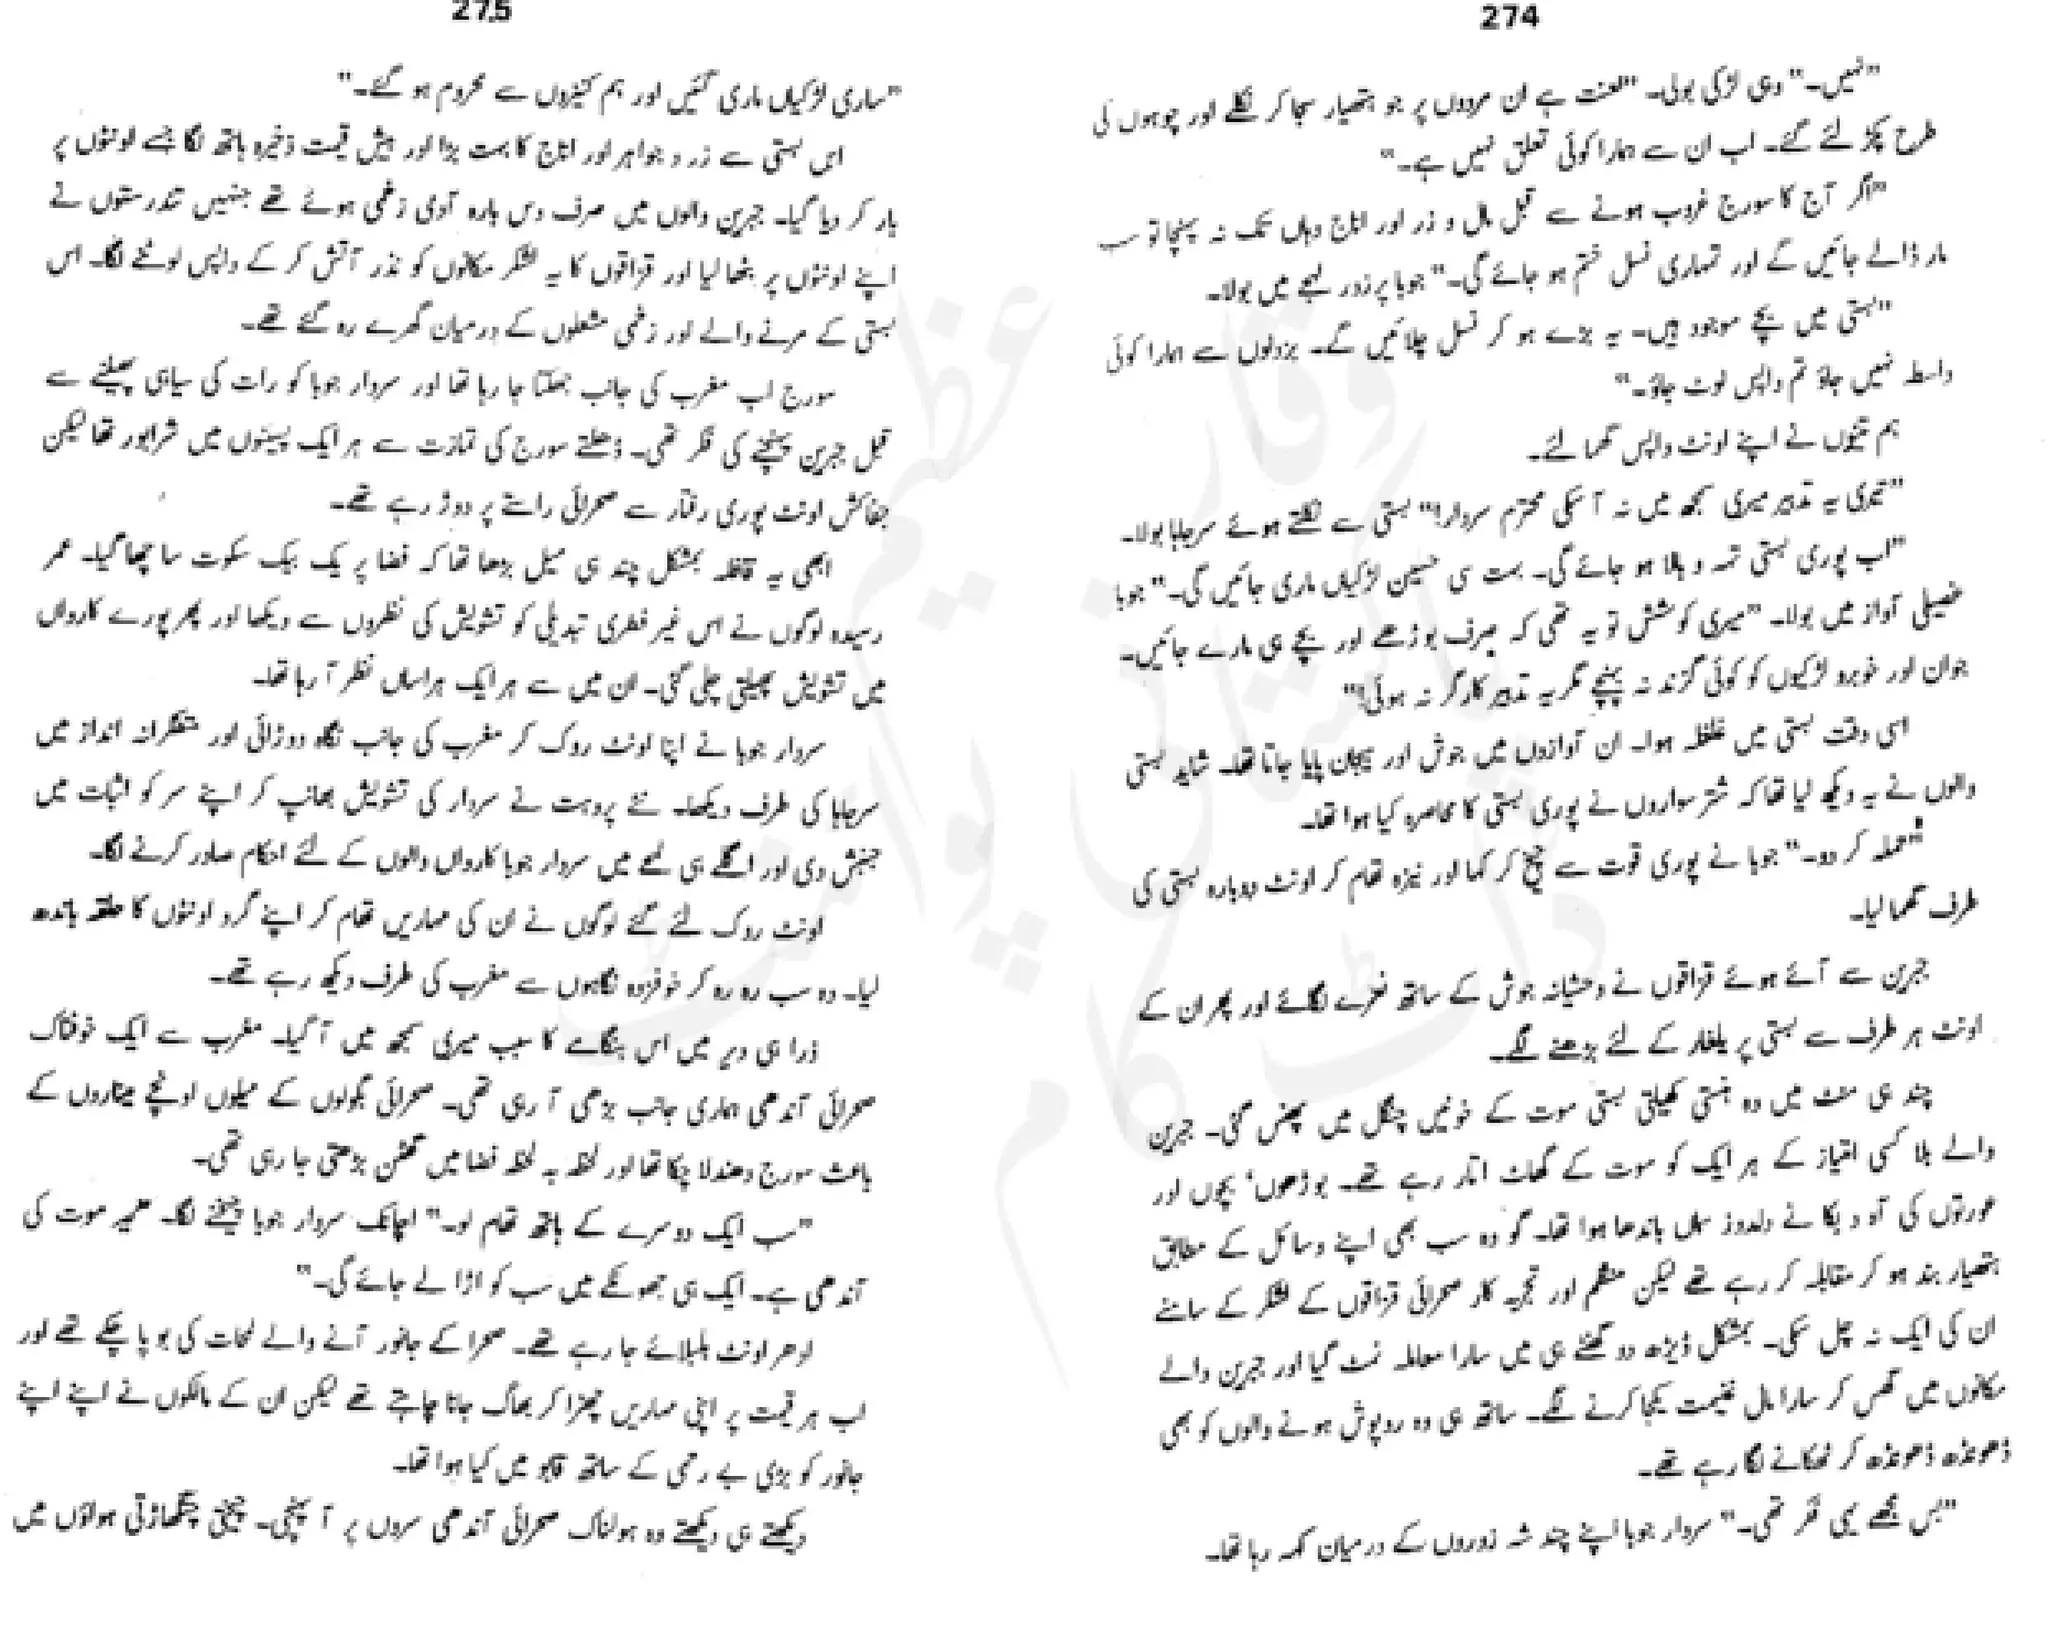 274
"نہیں۔" وہی لڑکی بولی۔ "لعنت ہے ان مردوں پر جو ہتھیار سجا کر نکلے اور چوہوں کی
طرح پکڑ لئے گئے۔ اب ان سے ہمارا کوئی تعلق نہیں ہے۔"
"اگر آج کا سورج غروب ہونے سے قبل مال و زر اور اناج وہاں تک نہ پہنچا تو سب
مار ڈالے جائیں گے اور تمہاری نسل ختم ہو جائے گی۔" جوبا پرزور لہجے میں بولا۔
"بستی میں بچے موجود ہیں۔ یہ بڑے ہو کر نسل چلائیں گے۔ بزدلوں سے ہمارا کوئی
واسطہ نہیں جاؤ تم واپس لوٹ جاؤ۔"
ہم تینوں نے اپنے اونٹ واپس گھمائے۔
"تیری یہ تدبیر میری سمجھ میں نہ آ سکی محترم سردار!" بستی سے نکلتے ہوئے سرجابا بولا۔
"اب پوری بستی تہہ و بالا ہو جائے گی۔ بہت سی حسین لڑکیاں ماری جائیں گی۔" جوبا
غصیلی آواز میں بولا۔ "میری کوشش تو یہ تھی کہ صرف بوڑھے اور بچے ہی مارے جائیں۔
جوان اور خوبرو لڑکیوں کو کوئی گزند نہ پہنچے مگر یہ تدبیر کارگر نہ ہوئی!"
اسی وقت بستی میں غلغلہ ہوا۔ ان آوازوں میں جوش اور ہیجان پایا جاتا تھا۔ شاید بستی
والوں نے یہ دیکھ لیا تھا کہ شتر سواروں نے پوری بستی کا محاصرہ کیا ہوا تھا۔
"حملہ کر دو۔" جوبا نے پوری قوت سے چیخ کر کہا اور نیزہ تھام کر اونٹ دوبارہ بستی کی
طرف گھما لیا۔
جبرین سے آئے ہوئے قزاقوں نے وحشیانہ جوش کے ساتھ نعرے لگائے اور پھر ان کے
اونٹ ہر طرف سے بستی پر یلغار کے لئے بڑھنے لگے۔
چند ہی منٹ میں وہ ہنستی کھیلتی بستی موت کے خونیں چنگل میں پھنس گئی۔ جبرین
والے بلا کسی امتیاز کے ہر ایک کو موت کے گھاٹ اتار رہے تھے۔ بوڑھوں، بچوں اور
عورتوں کی آہ و بکا نے دلدوز سماں باندھا ہوا تھا۔ گو وہ سب بھی اپنے وسائل کے مطابق
ہتھیار بند ہو کر مقابلہ کر رہے تھے لیکن منظم اور تجربہ کار صحرائی قزاقوں کے لشکر کے سامنے
ان کی ایک نہ چل سکی۔ بمشکل ڈیڑھ دو گھنٹے ہی میں سارا معاملہ نمٹ گیا اور جبرین والے
مکانوں میں گھس کر سارا مال غنیمت یکجا کرنے لگے۔ ساتھ ہی وہ روپوش ہونے والوں کو بھی
ڈھونڈھ ڈھونڈھ کر ٹھکانے لگا رہے تھے۔
"بس مجھے یہی فکر تھی۔" سردار جوبا اپنے چند شہ زوروں کے درمیان کہہ رہا تھا۔
275
"ساری لڑکیاں ماری گئیں اور ہم کنیزوں سے محروم ہو گئے۔"
اس بستی سے زر و جواہر اور اناج کا بہت بڑا اور بیش قیمت ذخیرہ ہاتھ لگا جسے اونٹوں پر
بار کر دیا گیا۔ جبرین والوں میں صرف دس بارہ آدمی زخمی ہوئے تھے جنہیں تندرستوں نے
اپنے اونٹوں پر بٹھا لیا اور قزاقوں کا یہ لشکر مکانوں کو نذر آتش کر کے واپس لوٹنے لگا۔ اس
بستی کے مرنے والے اور زخمی مشعلوں کے درمیان گھرے رہ گئے تھے۔
سورج اب مغرب کی جانب جھکتا جا رہا تھا اور سردار جوبا کو رات کی سیاہی پھیلنے سے
قبل جبرین پہنچنے کی فکر تھی۔ ڈھلتے سورج کی تمازت سے ہر ایک پسینوں میں شرابور تھا لیکن
جفاکش اونٹ پوری رفتار سے صحرائی راستے پر دوڑ رہے تھے۔
ابھی یہ قافلہ بمشکل چند ہی میل بڑھا تھا کہ فضا پر یک بیک سکوت سا چھا گیا۔ عمر
رسیدہ لوگوں نے اس غیر فطری تبدیلی کو تشویش کی نظروں سے دیکھا اور پھر پورے کارواں
میں تشویش پھیلتی چلی گئی۔ ان میں سے ہر ایک ہراساں نظر آ رہا تھا۔
سردار جوبا نے اپنا اونٹ روک کر مغرب کی جانب نگاہ دوڑائی اور متفکرانہ انداز میں
سرجابا کی طرف دیکھا۔ نئے پروہت نے سردار کی تشویش بھانپ کر اپنے سر کو اثبات میں
جنبش دی اور اگلے ہی لمحے میں سردار جوبا کارواں والوں کے لئے احکام صادر کرنے لگا۔
اونٹ روک لئے گئے لوگوں نے ان کی مہاریں تھام کر اپنے گرد اونٹوں کا حلقہ باندھ
لیا۔ وہ سب رہ رہ کر خوفزدہ نگاہوں سے مغرب کی طرف دیکھ رہے تھے۔
ذرا ہی دیر میں اس ہنگامے کا سبب میری سمجھ میں آ گیا۔ مغرب سے ایک خوفناک
صحرائی آندھی ہماری جانب بڑھی آ رہی تھی۔ صحرائی بگولوں کے میلوں اونچے میناروں کے
باعث سورج دھندلا چکا تھا اور لحظہ بہ لحظہ فضا میں گھٹن بڑھتی جا رہی تھی۔
"سب ایک دوسرے کے ہاتھ تھام لو۔" اچانک سردار جوبا چیخنے لگا۔ موت کی
آندھی ہے۔ ایک ہی جھونکے میں سب کو اڑا لے جائے گی۔"
ادھر اونٹ بلبلائے جا رہے تھے۔ صحرا کے جانور آنے والے لمحات کی بو پا چکے تھے اور
اب ہر قیمت پر اپنی مہاریں چھڑا کر بھاگ جانا چاہتے تھے لیکن ان کے مالکوں نے اپنے اپنے
جانور کو بڑی بے رحمی کے ساتھ قابو میں کیا ہوا تھا۔
دیکھتے ہی دیکھتے وہ ہولناک صحرائی آندھی سروں پر آ پہنچی۔ چیختی چنگھاڑتی ہواؤں میں
وقار عظیم
پاکستانی پوائنٹ
ڈاٹ کام